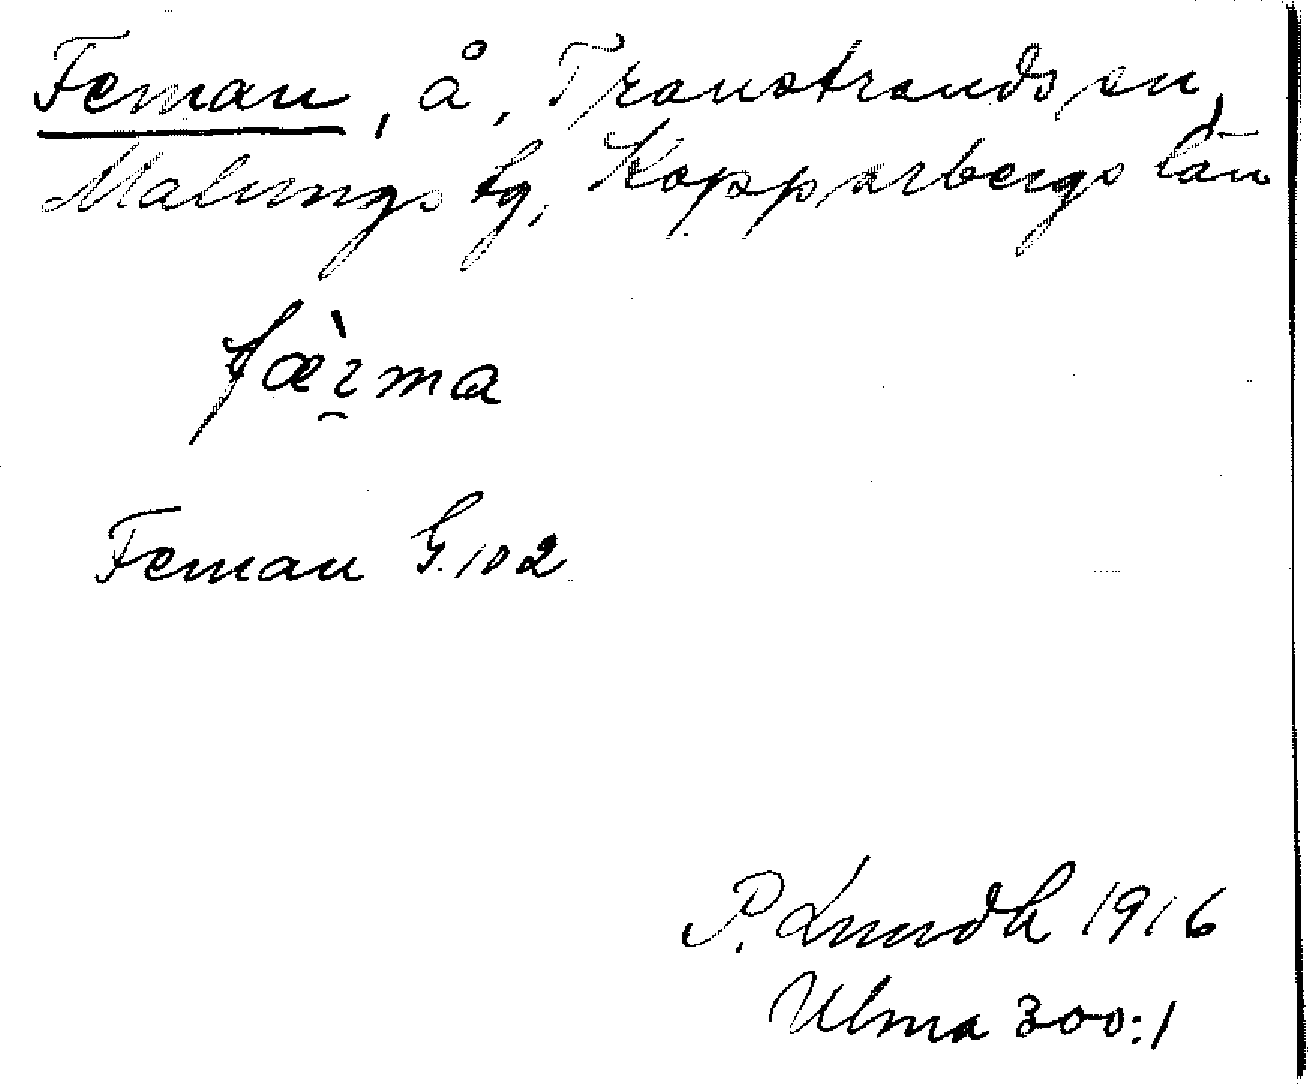 Feman, å, Transtrands sn,
Malungs tg, Kopparbergs län
fæ̀ɩ̯ma
Feman G.102
P. Lundh 1916
Ulma 300:1